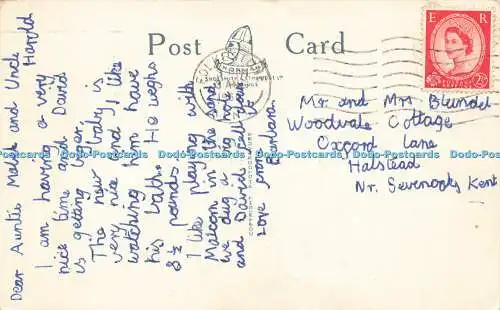 Post Card
Dear Auntie Madh and Uncle Harold
I am having a very
nice time and David
is getting bigger.
The new baby is
very nice and I like
watching him have
his bath. He weighs
8½ pounds
I like playing with
Malcom in the sand
we dug a big hole
and David fell down it
Love from
Barbara.
COPYRIGHT PHOTOGRAPH
E R
2½D
Mr and Mrs Blundel
Woodvale Cottage
Oxford Lane
Halstead
Nr. Sevenoaks Kent
Dodo-Postcards Dodo-Postcards Dodo-Postcards Dodo-Postcards Dodo-Postcards